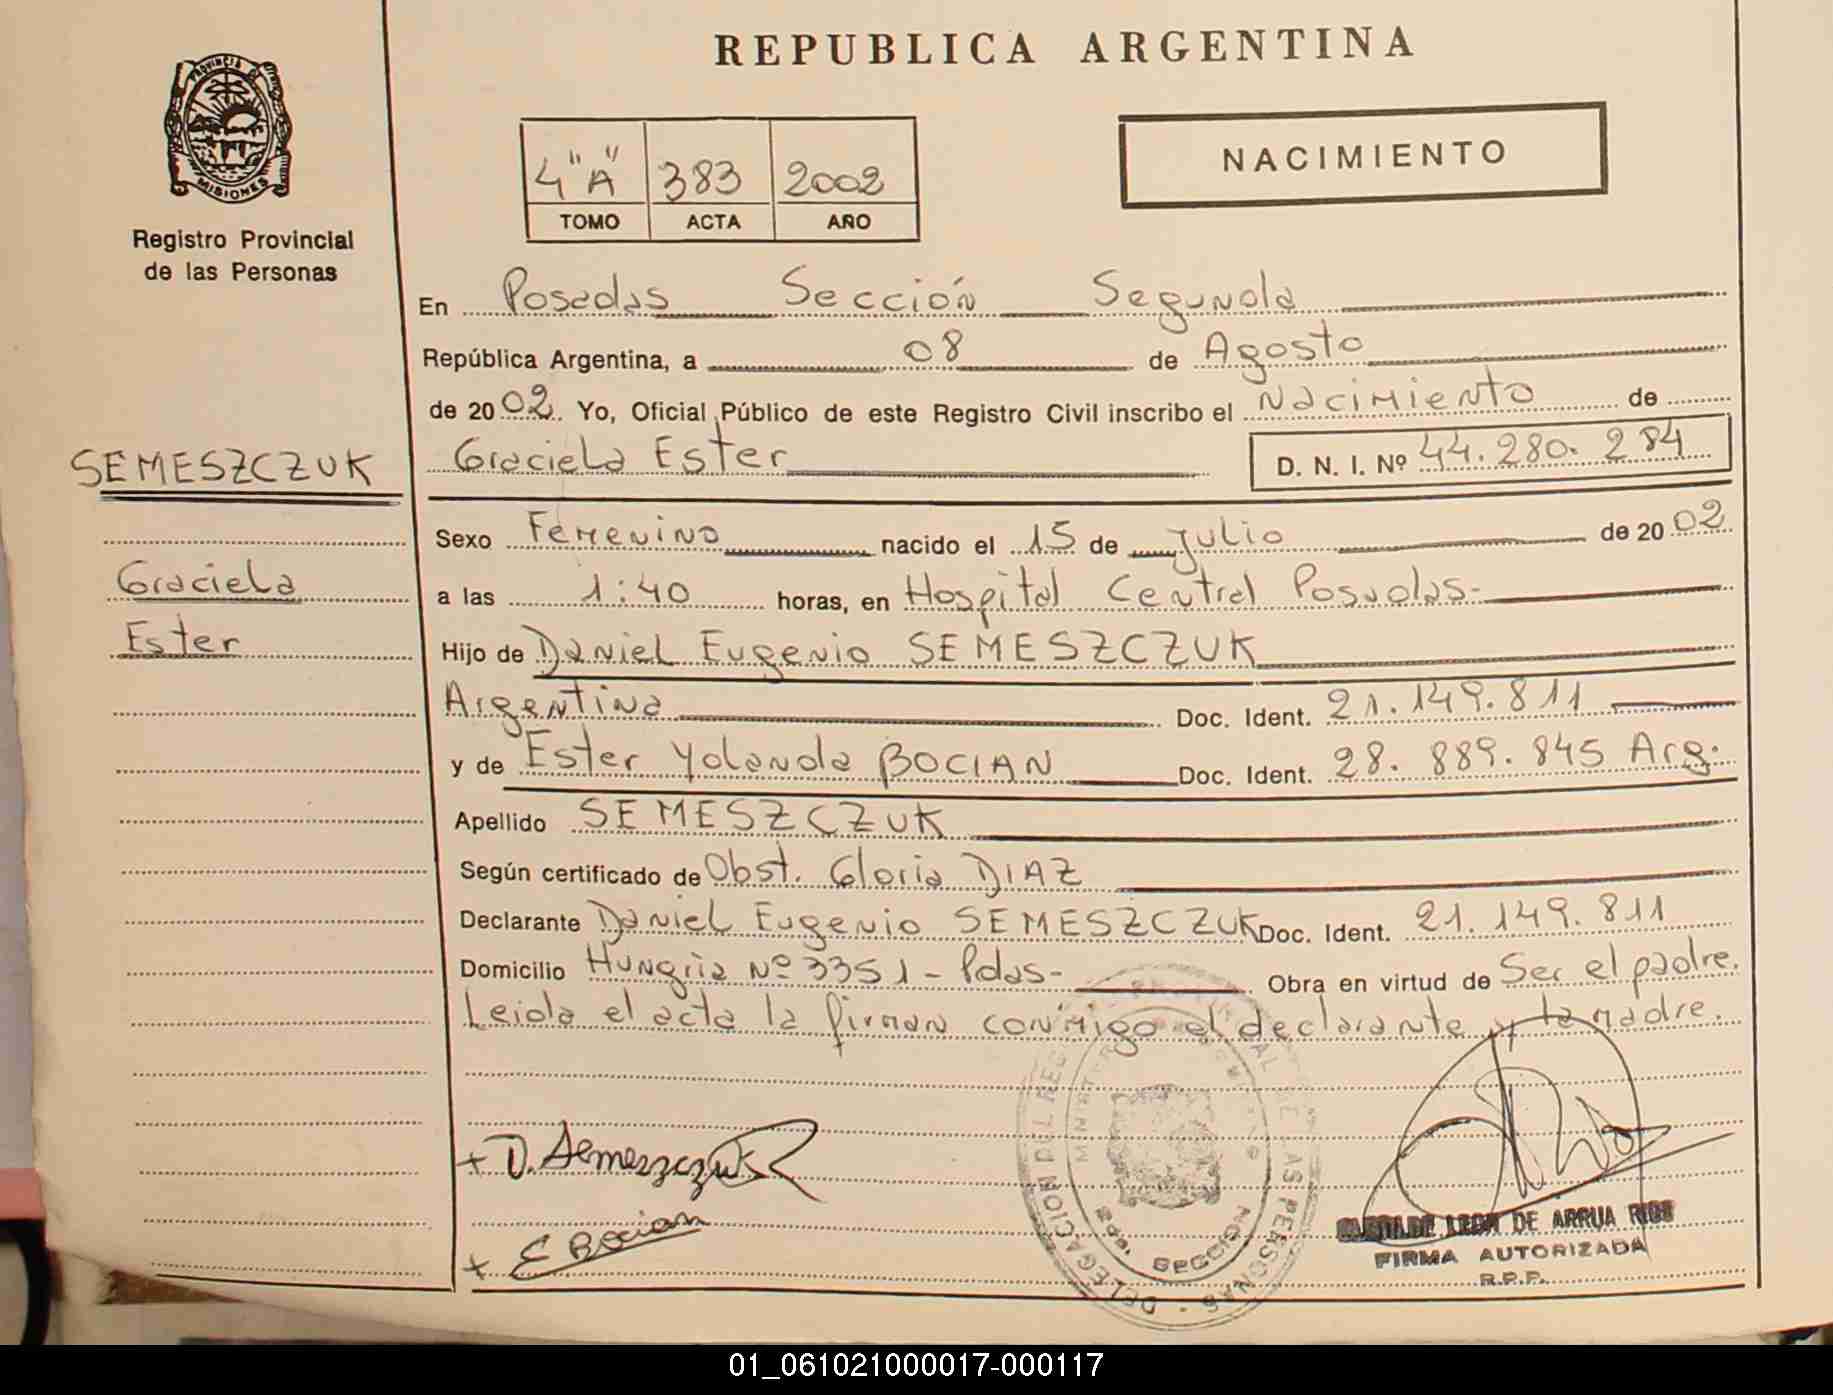 REPUBLICA ARGENTINA
PROVINCIA DE
MISIONES
Registro Provincial
de las Personas
4 "A" 383 2002
TOMO ACTA AÑO
NACIMIENTO
En Posadas Sección Segunda
República Argentina, a 08 de Agosto
de 2002. Yo, Oficial Público de este Registro Civil inscribo el Nacimiento de
SEMESZCZUK
Graciela Ester
D. N. I. Nº 44.280.284
Sexo Femenino nacido el 15 de Julio de 2002
Graciela
a las 1:40 horas, en Hospital Central Posadas-
Ester
Hijo de Daniel Eugenio SEMESZCZUK
Argentina Doc. Ident. 21.149.811
y de Ester Yolanda BOCIAN Doc. Ident. 28.889.845 Arg.
Apellido SEMESZCZUK
Según certificado de Obst. Gloria DIAZ
Declarante Daniel Eugenio SEMESZCZUK Doc. Ident. 21.149.811
Domicilio Hungria Nº 3351 - Pdas- Obra en virtud de Ser el padre.
Leida el acta la firman conmigo el declarante y la madre.
+ D. Semeszczuk
+ E Bocian
DELEGACION DEL REG PROVINCIAL DE LAS PERSONAS
2da. SECCION
LEON DE ARRUA RIOS
FIRMA AUTORIZADA
R.P.P.
01_061021000017-000117